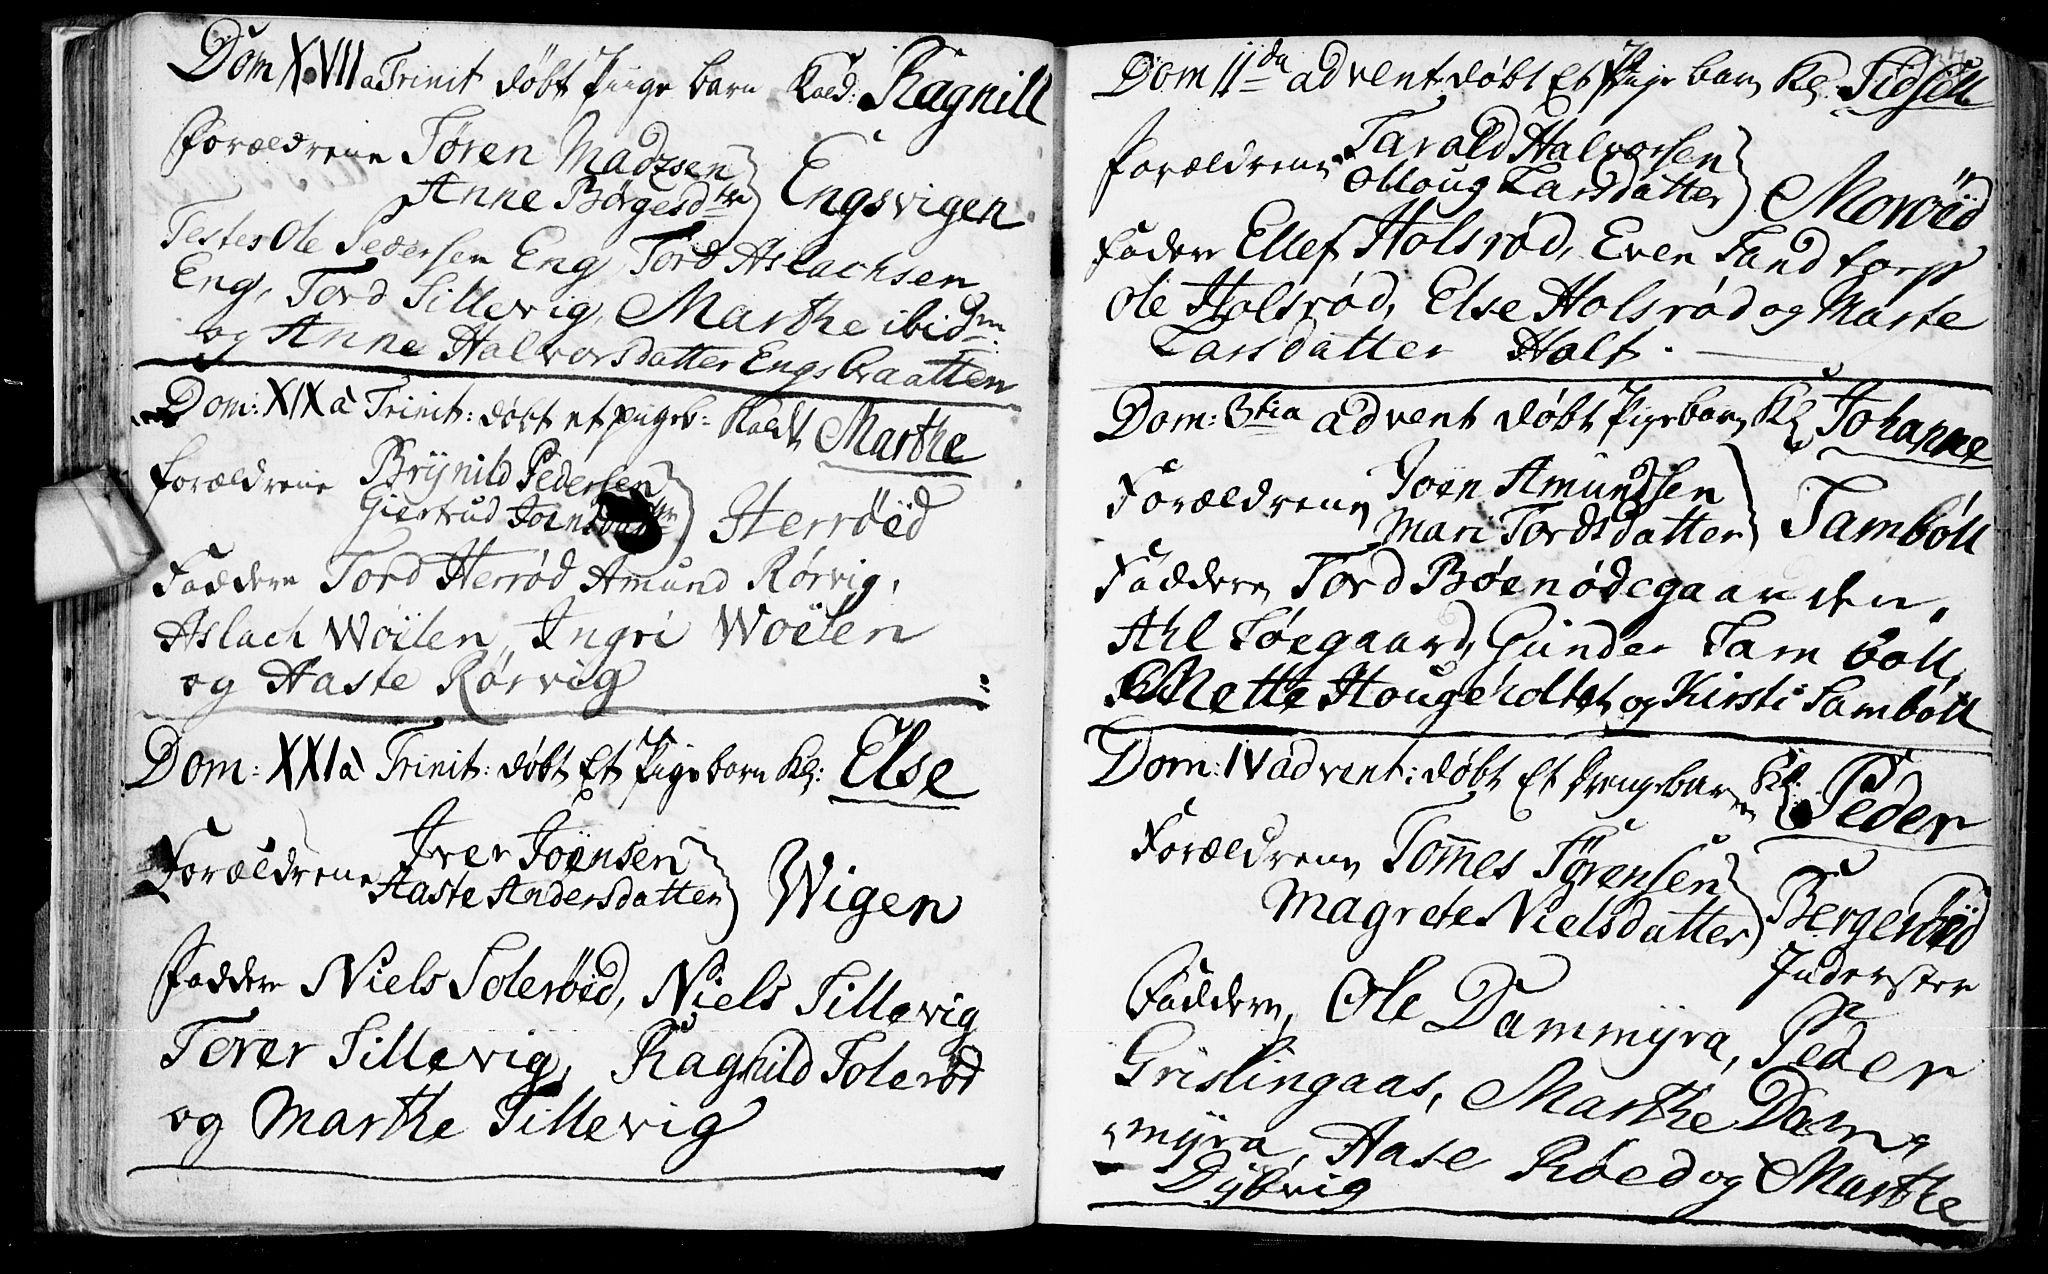 Dom XVII a Trinit døbt Piige barn Kald: Ragnill
Forældrene Søren Madzsen
Anne Børgesdtr
Engsvigen
Testes Ole Pedersen Eng, Tord Aslachsen
Eng, Tord Sillevig, Marthe ibidm:
og Anne Halvorsdatter Engsbraatten
Dom: XIX a Trinit: døbt et piigeb: Kaldt Marthe
forældrene Brÿnild Pedersen
Giertrud Joensdatter
Herröed
Faddere Tord Herrød Amund Rørvig,
Aslach Wöÿlen, Ingri Wöÿlen
og Aaste Rørvig
Dom: XXI a Trinit: døbt Et Pige barn Kl: Else
Forældrene Iver Joënsen
Aaste Andersdatter
Wigen
Faddere Niels Solerøed, Niels Sillevig
Torer Sillevig, Ragnild Solerød
og Marthe Sillevig
Dom 11da advent døbt Et Pige barn Kl: Sidsell
Forældrene Tarald Halvorsen
Larsdatter
Moröed
Fadere Ellef Holsrød, Even Sandtorp
Ole Holsrød, Else Holsrød og Marte
Larsdatter Holt.
Dom: 3tia advent døbt Pigebarn Kl Johanne
Forældrene Joen Amundsen
Mari Tordsdatter
Samböll
Faddere Tord Bøenødegaarden,
Søegaard, Gunder Sam böll,
Mette Hougeholtet og Kirsti Samböll
Dom: IV advent: døbt Et drengebarn Kl: Peder
Forældrene Tom̄es Sørensen
Magrete Nielsdatter
Bergeröed
Inderster
Faddere, Ole Dammÿra, Peder
Grislingaas, Marthe Dam,
mÿra, Aase Røed og Marthe
Dÿbvig